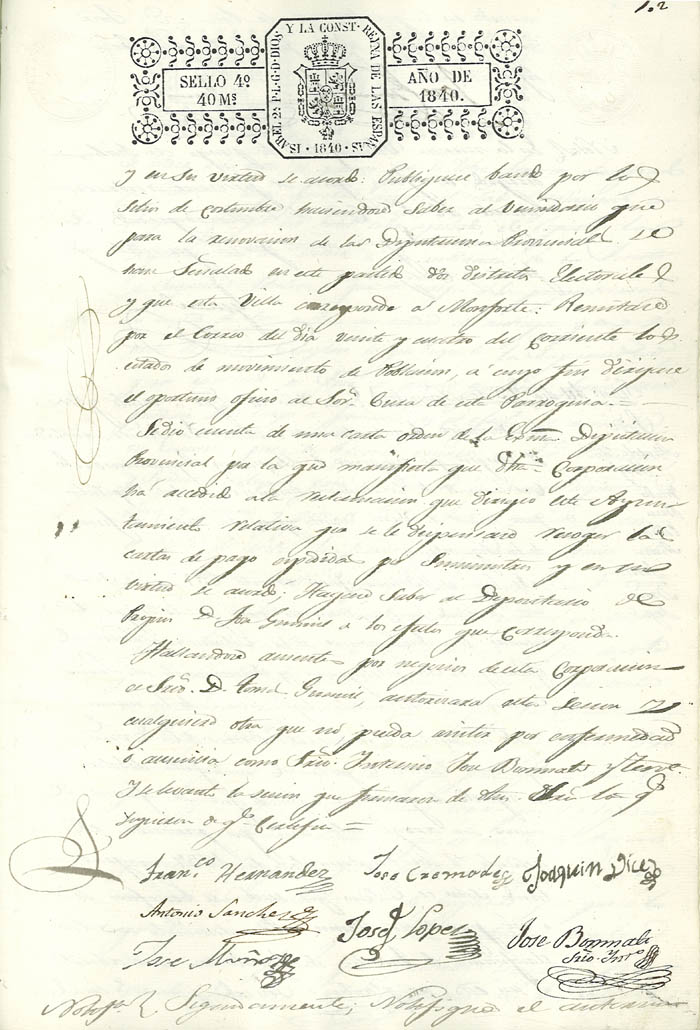 1.2
ISABEL 2ª P.L.G.D.DIOS Y LA CONST. REYNA DE LAS ESPAÑAS
SELLO 4º
40 Ms
AÑO DE
1840.
·1840·
y en su virtud se acordó: Publiquese bando por los
sitios de costumbre haciendose saber al Vecindario que
para la renovacion de las Diputaciones Provinciales se
han Señalado en este partido dos distritos Electorales
y que esta Villa corresponde a Monforte: Remitase
por el Correo del dia veinte y cuatro del corriente los
estados de movimiento de Poblacion, a cuyo fin dirijase
el oportuno oficio al Sor. Cura de esta Parroquia. =
Se dió cuenta de una carta orden de la Exma. Diputacion
Provincial por la que manifiesta que dha. Corporacion
há accedido a la reclamacion que dirigio este Ayun-
tamiento relativa que se le dispensase recoger las
cartas de pago expedidas por Suministros y en su
virtud se acordó; Hagase Saber al Depositario de
Propios D. José a los efectos que corresponda.
Hallandose ausente por negocios de esta Corporacion
el Srio. D. Tomas, autorizará esta Sesion y
cualquiera otra que no pueda asistir por enfermedad
ó ausencia como Srio. Interino Jose Bonmati
Y se levantó la sesion que firmaron de dhos. Sres. los q.
supieron de q. Certifico =
Franco. Hernandez Jose Cremades Joaquin Dicez
Antonio Sanchez Josef Lopez Jose Bonmati
Jose Muñoz Srio. Into.
Notifn. } Seguidamente; Notifiqué el anterior